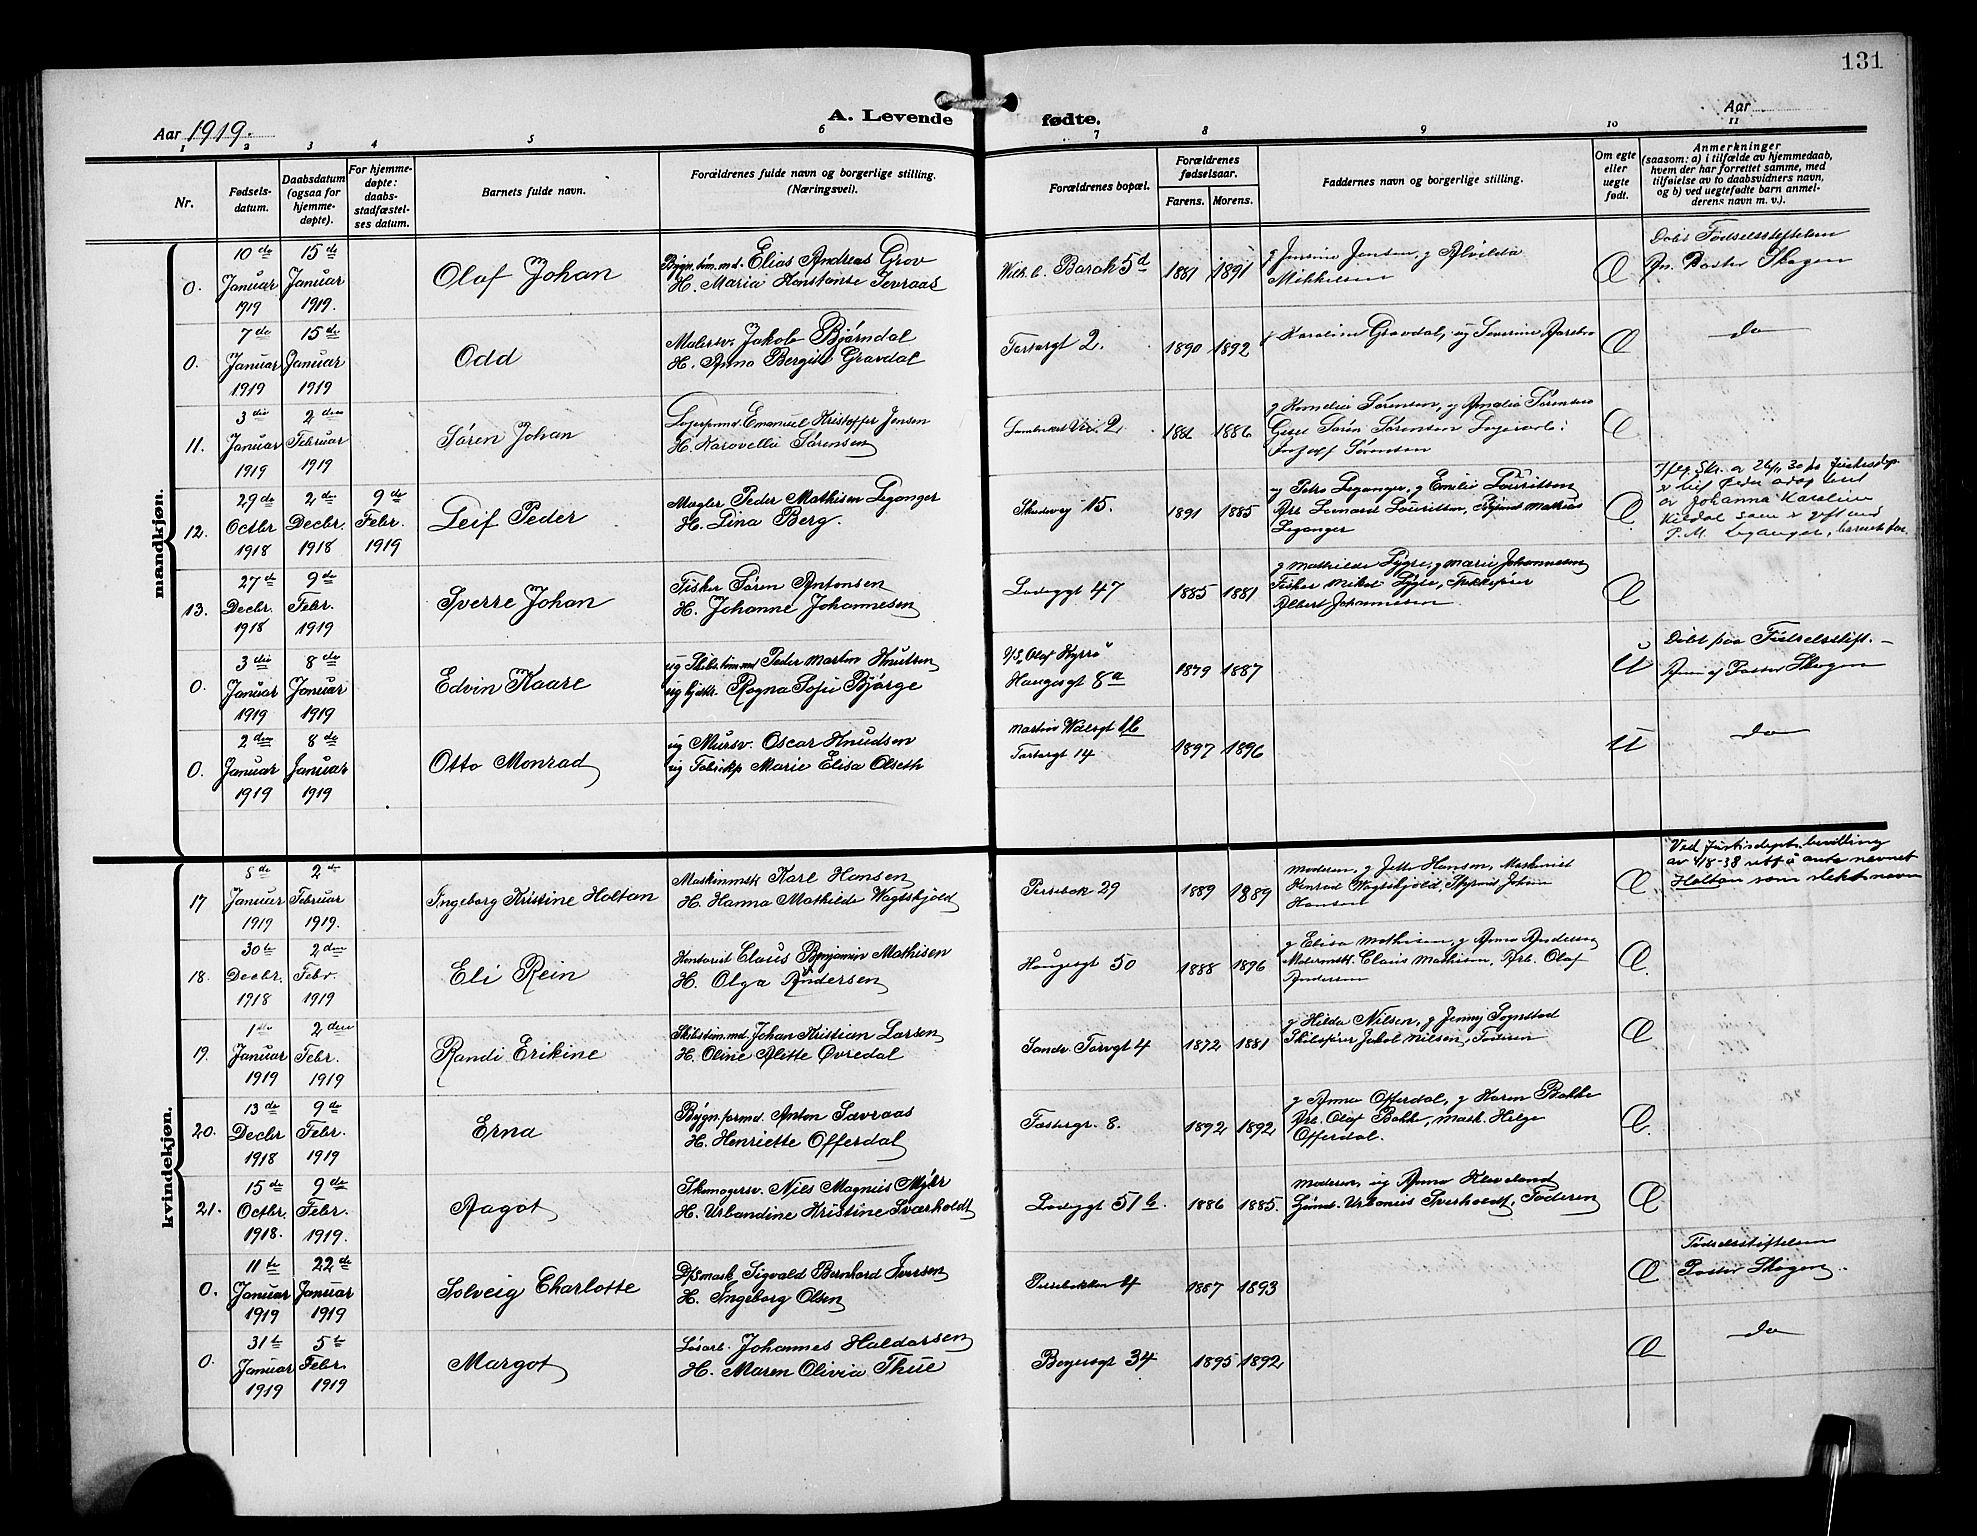 131
Aar 1919.
A. Levende fødte.
Aar
1 2 3 4 5 6 7 8 9 10 11
Nr.
Fødsels-
datum.
Daabsdatum
(ogsaa for
hjemme-
døpte).
For hjemme-
døpte:
daabs-
stadfæstel-
ses datum.
Barnets fulde navn.
Forældrenes fulde navn og borgerlige stilling.
(Næringsvei).
Forældrenes bopæl.
Forældrenes
fødselsaar.
Farens. Morens.
Faddernes navn og borgerlige stilling.
Om egte
eller
uegte
født.
Anmerkninger
(saasom: a) i tilfælde av hjemmedaab,
hvem der har forrettet samme, med
tilføielse av to daabsvidners navn,
og b) ved uegtefødte barn anmel-
derens navn m. v.).
mandkjøn.
0.
10 de
Januar
1919
15 de
Januar
1919.
Olaf Johan
Bygn.tøm.md. Elias Andreas Grov
H. Maria Konstanse Sevraas
Wilh. b. Barak 5 d
1881 1891
g Jensine Jensen, g Alvilda
Mikkelsen
Æ
Døbt Fødselsstiftelsen
An. Pastor Skogen
0.
7 de
Januar
1919
15 de
Januar
1919
Odd
Malersv. Jakob Bjørndal
H. Anna Bergite Gravdal
Tastargt 2.
1890 1892
Karoline Gravdal, ug Severine Aarebro
Æ
do
11.
3 die
Januar
1919
2 den
Februar
1919
Søren Johan
Emanuel Kristoffer Jensen
H. Narovella Sørensen
2
1886
g Kornelia Sørensen, g Amalia Sørensen
Sørensen
Sørensen
Æ
12.
29 de
Octbr
1918
2 de
Decbr.
1918
9 de
Febr.
1919
Leif Peder
Magler Peder Mathisen Leganger
H. Lina Berg.
Skudevej 15.
1891 1885
ug Petra Leganger, g Emilie Lauritsen
Arb. Leonard Lauritsen, Mathias
Leganger
Æ
Johanna Karoline
Kildal som e gift med
P. M. Leganger, barnets far.
13.
27 de
Decbr.
1918
9 de
Febr.
1919
Sverre Johan
Fisker Søren Antonsen
H. Johanne Johannesen
Lodvggt 47
1885 1881
g Mathilde Lygre, g Marie Johannesen
Fisker Mikal Lygre,
Albert Johannesen
Æ
0.
3 die
Januar
1919
8 de
Januar
1919
Edvin Kaare
ug Skibstøm.md Peder Martin Knutsen
ug Ragna Sofie Bjørge
D/S „Olaf Kyrre"
Haugesgt 8 a
1879 1887
U
Døbt paa Fødselsstift. –
Anm. af Pastor Skogen
0.
2 den
Januar
1919
8 de
Januar
1919
Otto Monrad
ug Mursv. Oscar Knudsen
ug Fabrikp Marie Elisa Olseth
Tastargt 14
1897 1896
U
do
kvindekjøn.
17
5 de
Januar
1919
2 de
Februar
1919.
Ingeborg Kristine Holtan
Maskinmstr. Karl Hansen
H. Hanna Mathilde Wagtskjold
Persebak 29
1889 1889
Moderen, g Jette Hansen, Maskinist
Konrad Wagtskjold, Johan
Hansen
Æ
Ved Justisdepts. bevilling
av 4/8-38 rett å anta navnet
Holtan som slektsnavn
18.
30 te
Decbr.
1918
2 den
Febr.
1919
Eli Rein
Kontorist Claus Benjamin Mathisen
H. Olga Andersen
Haugesgt 50
1888 1896
g Elisa Mathisen, g Anna Andersen
Malermstr. Claus Mathisen, Arb. Olaf
Andersen
Æ.
19.
1 ste
Januar
1919
2 den
Febr.
1919
Randi Erikine
Skibstøm.md Johan Kristian Larsen
H. Oline Alitte Øvredal
Sandv. Torvgt 4
1872 1881
g Hilda Nilsen, g Jenny Sognstad
Skibsfører Jakob Nilsen, Faderen
Æ
20.
13 de
Decbr
1918
9 de
Febr.
1919
Erna
Bygn.formd. Anton Sævraas
H. Henriette Offerdal
Tastargt. 8.
1892 1892
g Anna Offerdal, g Karen Bakke
Arb. Olaf Bakke, mask. Helge
Offerdal.
Æ.
21.
15 de
Octbr.
1918.
9 de
Febr.
1919.
Aagot
Skomagersv. Nils Magnus Myhr
H. Urbandine Kristine Sværholdt
Lodvggt 51 b.
1886 1885.
Moderen, ug Anna Kleveland
Urbanus Sverholdt, Faderen
Æ
0.
11 te
Januar
1919
22 de
Januar
1919
Solveig Charlotte
D/S mask Sigvald Bernhard Iversen
H. Ingeborg Olsen
Persebakken 4
1887 1893
Æ
Fødselsstiftelsen
Pastor Skogen.
0.
31 te
Januar
1919
5 te
Febr.
1919
Margot
Løsarb. Johannes Haldorsen
H. Maren Olivia Thue
Bøyersgt 34
1895 1892
Æ
do